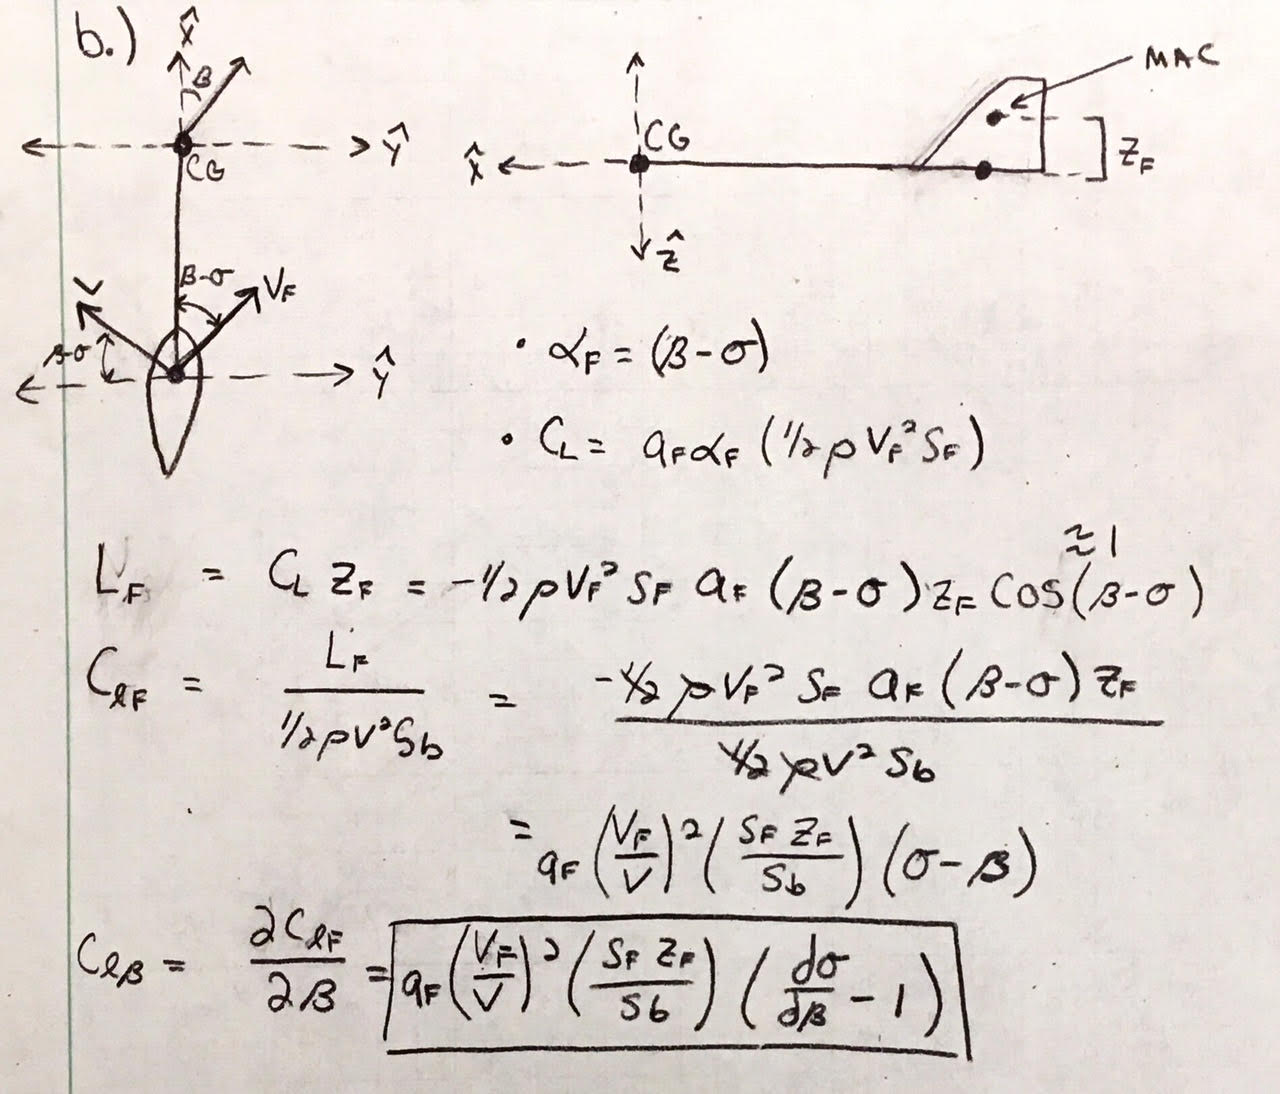 b.)
X̂
β
Ŷ
CG
β-σ
V_F
β-σ
Ŷ
MAC
CG
X̂
Z_F
Ẑ
• α_F = (β-σ)
• C_L = a_F α_F (1/2 ρ V_F² S_F)
≈1
L_F = C_L Z_F = -1/2 ρ V_F² S_F a_F (β-σ) Z_F Cos(β-σ)
C_ℓF = L_F / (1/2 ρ V² S b) = -1/2 ρ V_F² S_F a_F (β-σ) Z_F / (1/2 ρ V² S b)
= a_F (V_F/V)² (S_F Z_F / S b) (σ-β)
C_ℓβ = ∂C_ℓF/∂β = a_F (V_F/V)² (S_F Z_F / S b) (dσ/dβ - 1)